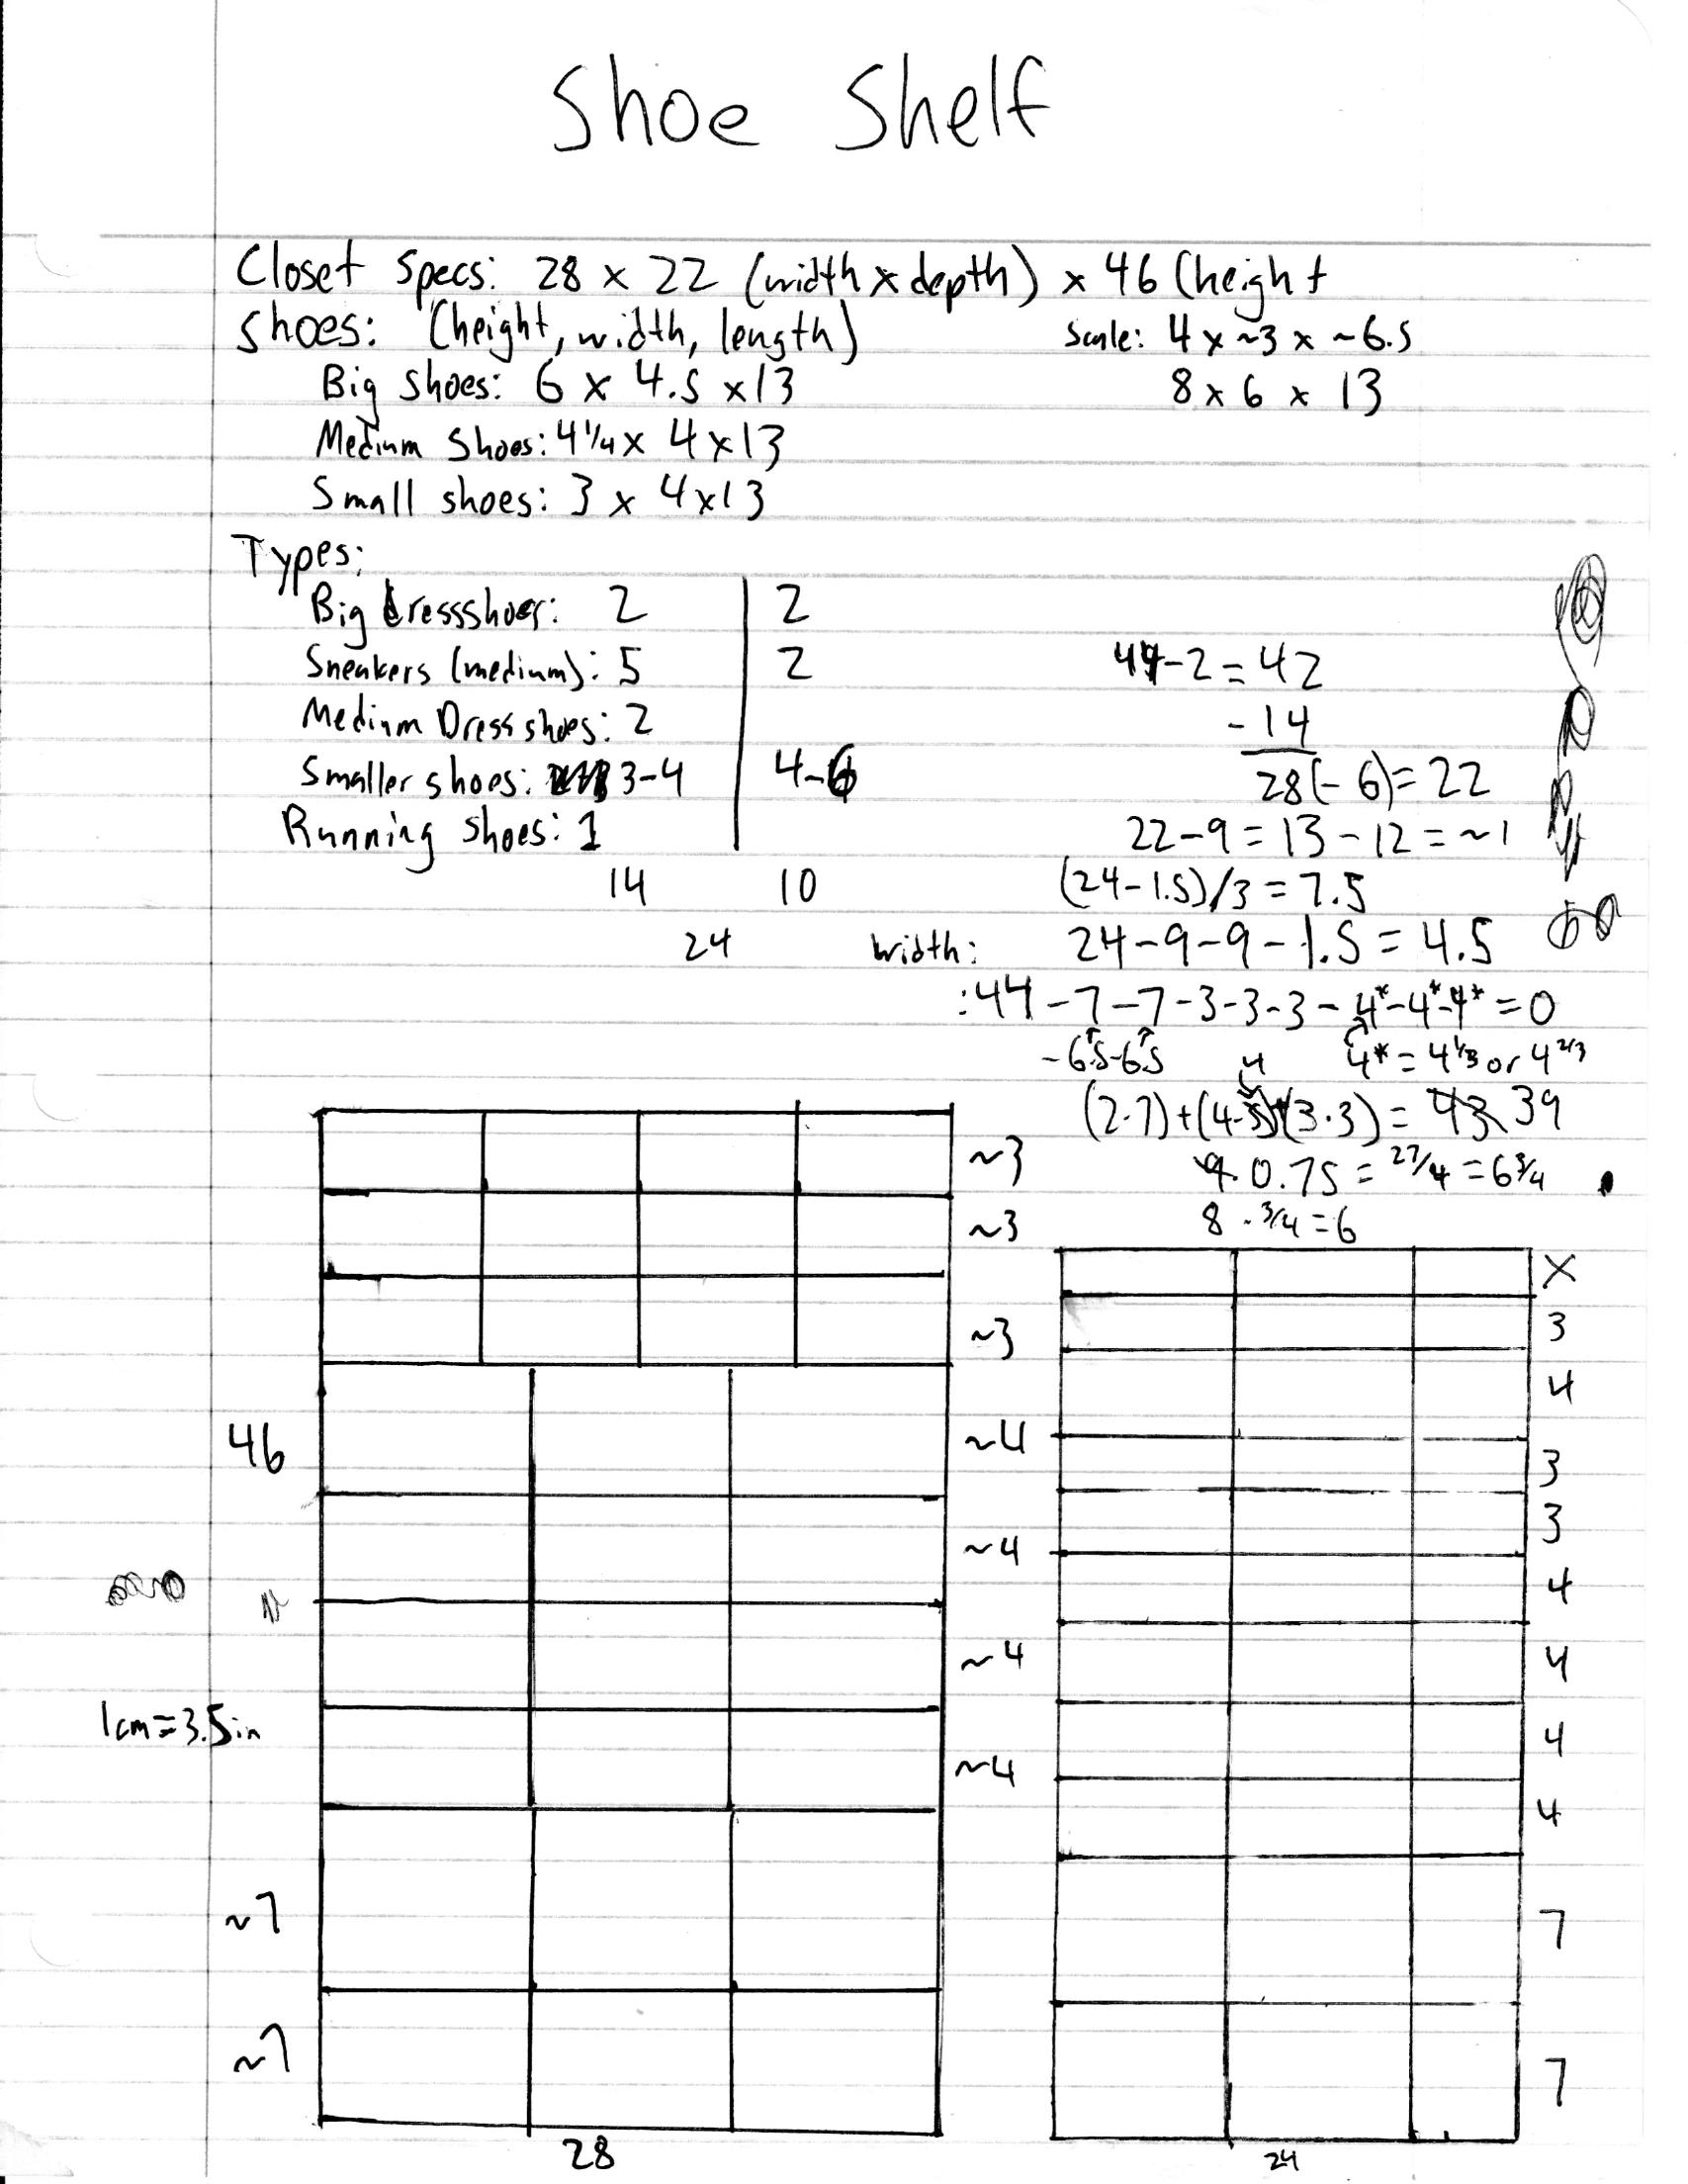 Shoe Shelf
Closet Specs: 28 x 22 (width x depth) x 46 (height
Shoes: (height, width, length)
Scale: 4 x ~3 x ~6.5
Big Shoes: 6 x 4.5 x 13
8 x 6 x 13
Medium Shoes: 4 1/4 x 4 x 13
Small shoes: 3 x 4 x 13
Types:
Big dressshoes: 2 2
Sneakers (medium): 5 2
Medium Dress shoes: 2
Smaller shoes: 3-4 4-6
Running shoes: 1
14 10
24
44-2 = 42
-14
28(-6) = 22
22-9 = 13-12 = ~1
(24-1.5)/3 = 7.5
width: 24-9-9-1.5 = 4.5
:44-7-7-3-3-3-4*-4*-4* = 0
-6.5-6.5 4* = 4 1/3 or 4 2/3
4
(2·7)+(4· )+(3·3) = 39
9·0.75 = 27/4 = 6 3/4
8·3/4 = 6
~3
~3
~3
46
~4
~4
~4
1cm=3.5in
~4
~7
~7
28
X
3
4
3
3
4
4
4
4
7
7
24